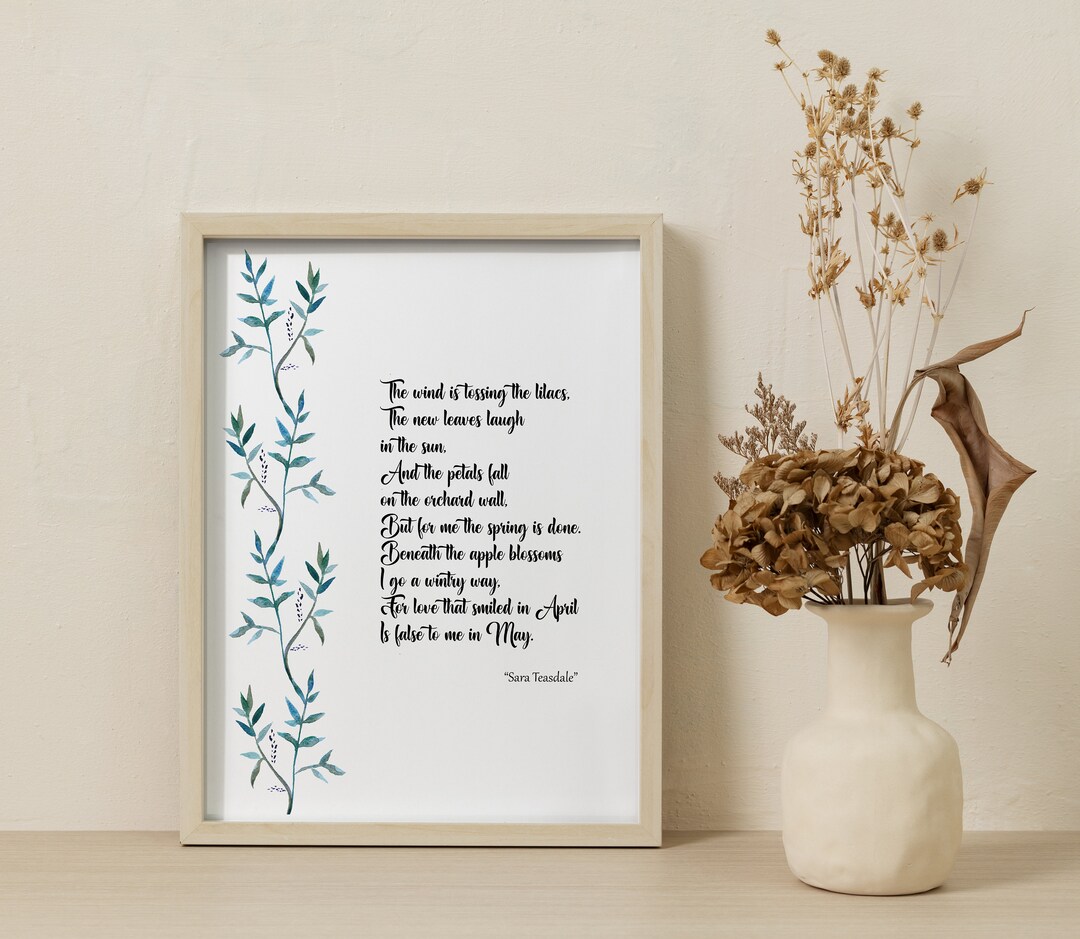 The wind is tossing the lilacs,
The new leaves laugh
in the sun,
And the petals fall
on the orchard wall,
But for me the spring is done.
Beneath the apple blossoms
I go a wintry way,
For love that smiled in April
Is false to me in May.
“Sara Teasdale”